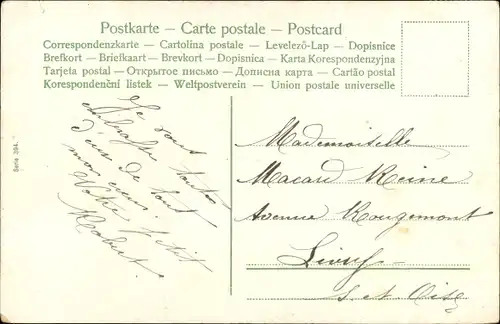 Postkarte — Carte postale — Postcard
Correspondenzkarte — Cartolina postale — Levelező-Lap — Dopisnice
Brefkort — Briefkaart — Brevkort — Dopisnica — Karta Korespondenzyjna
Tarjeta postal — Открытое письмо — Дописна карта — Cartão postal
Korespondenční listek — Weltpostverein — Union postale universelle
Serie 394.
Je vous
toutes
deux de tout
mon cœur.
Votre petit
Robert
Mademoiselle
Macard Reine
Avenue Rougemont
S. et Oise